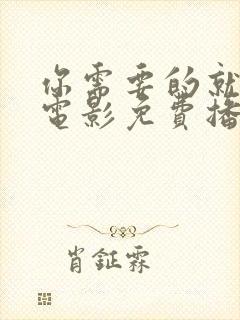 你需要的就
電影免費播
肖鉦霖